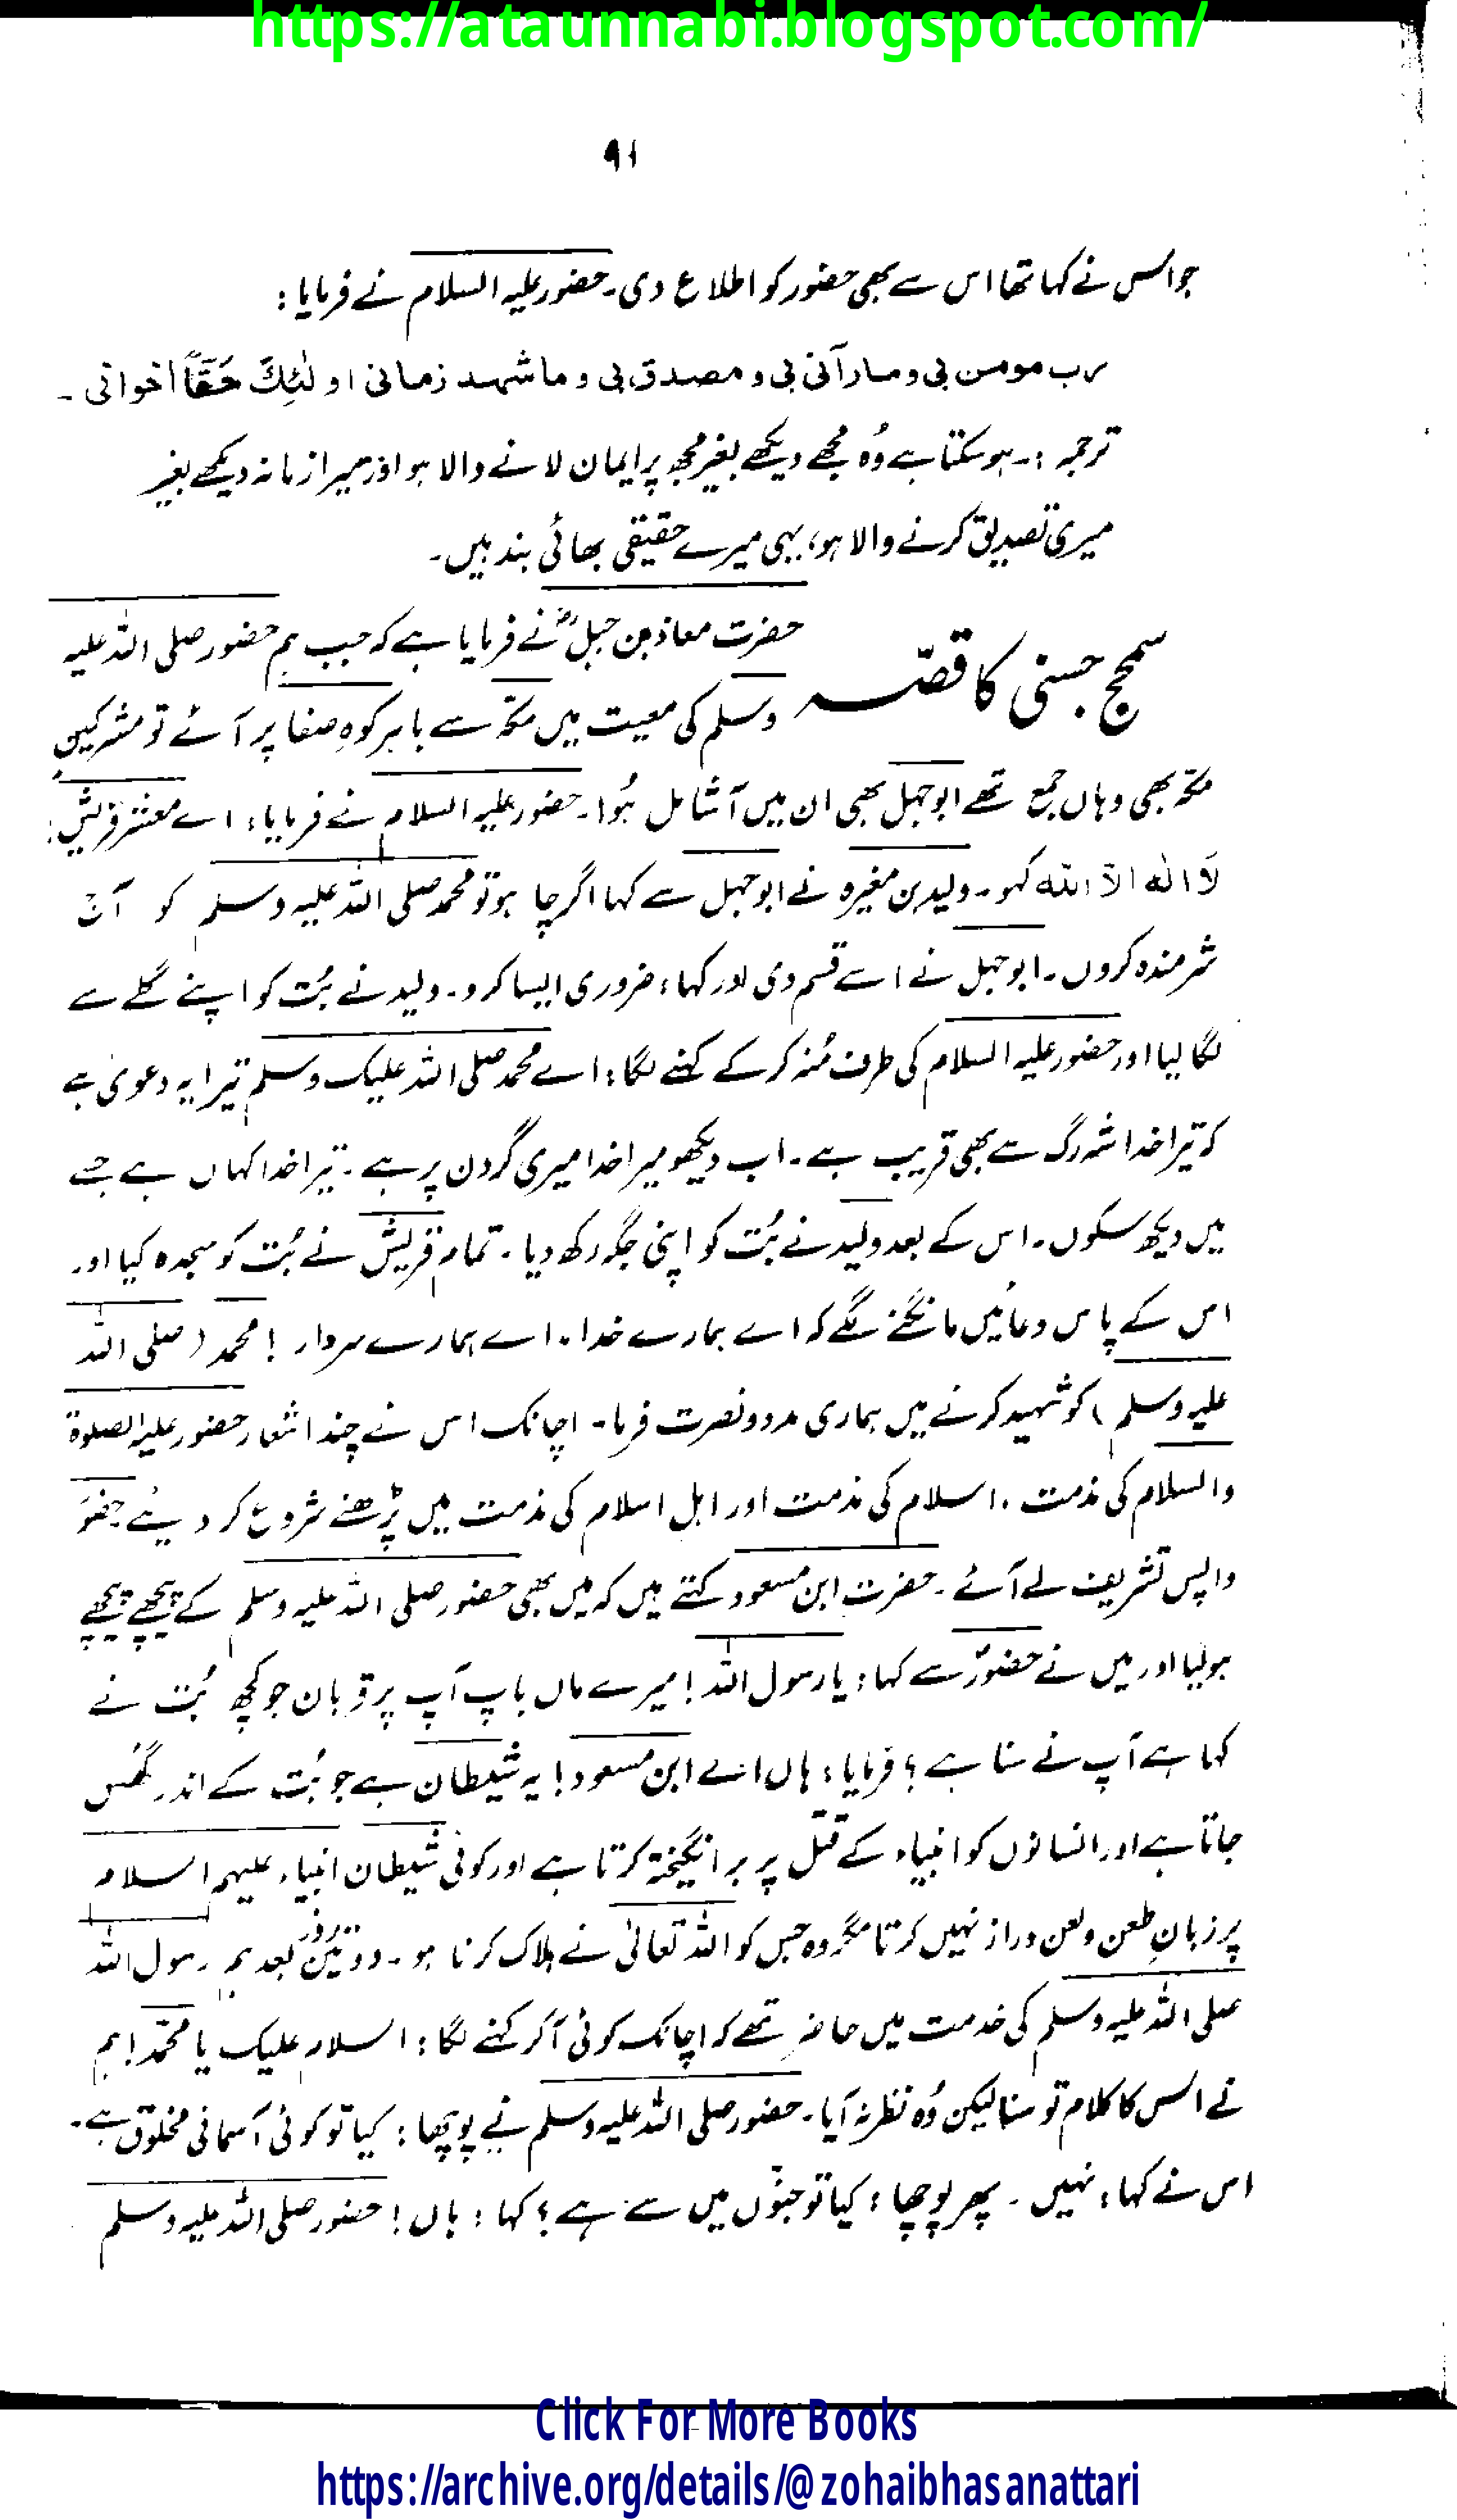 https://ataunnabi.blogspot.com/
۹۱
جو اس نے کہا تھا اس سے بھی حضور کو اطلاع دی۔ حضور علیہ السلام نے فرمایا:
رب مومن بی و مارآنی بی و مصدق بی و ما شہد زمانی اولٰئِکَ حَقًّا اخوانی۔
ترجمہ :۔ ہو سکتا ہے وُہ مجھے دیکھے بغیر مجھ پر ایمان لانے والا ہو اور میرا زمانہ دیکھے بغیر
میری تصدیق کرنے والا ہو، یہی میرے حقیقی بھائی بند ہیں۔
سمحج جِنی کا قصّہ
حضرت معاذ بن جبلؓ نے فرمایا ہے کہ جب ہم حضور صلی اللہ علیہ
وسلم کی معیت میں مکّہ سے باہر کوہِ صفا پر آئے تو مشرکینِ
مکّہ بھی وہاں جمع تھے ابوجہل بھی ان میں آ شامل ہُوا۔ حضور علیہ السلام نے فرمایا: اے معشرِ قریش:
لَا الٰہ الّا اللہ کہو۔ ولید بن مغیرہ نے ابوجہل سے کہا اگر چاہو تو محمد صلی اللہ علیہ وسلم کو آج
شرمندہ کروں۔ ابوجہل نے اسے قسم دی اور کہا، ضروری ایسا کرو۔ ولید نے بُت کو اپنے گلے سے
لگا لیا اور حضور علیہ السلام کی طرف مُنہ کر کے کہنے لگا: اے محمد صلی اللہ علیک وسلم تیرا یہ دعویٰ ہے
کہ تیرا خدا شہ رگ سے بھی قریب ہے۔ اب دیکھو میرا خدا میری گردن پر ہے۔ تیرا خدا کہاں ہے جسے
میں دیکھ سکوں۔ اس کے بعد ولید نے بُت کو اپنی جگہ رکھ دیا۔ تمام قریش نے بُت کو سجدہ کیا اور
اس کے پاس دعائیں مانگنے لگے کہ اے ہمارے خدا، اے ہمارے سردار ! محمد (صلی اللہ
علیہ وسلم) کو شہید کرنے میں ہماری مدد و نصرت فرما۔ اچانک اس نے چند اشعار حضور علیہ الصلوۃ
والسلام کی مذمت، اسلام کی مذمت اور اہل اسلام کی مذمت میں پڑھنے شروع کر دیئے۔ حضورؐ
واپس تشریف لے آئے۔ حضرت ابن مسعود کہتے ہیں کہ میں بھی حضور صلی اللہ علیہ وسلم کے پیچھے پیچھے
ہولیا اور میں نے حضورؐ سے کہا: یا رسول اللہ! میرے ماں باپ آپ پر قربان جو کچھ بُت نے
کہا ہے آپ نے سنا ہے؟ فرمایا: ہاں اے ابن مسعود! یہ شیطان ہے جو بُت کے اندر گھُس
جاتا ہے اور انسانوں کو انبیاء کے قتل پر برانگیختہ کرتا ہے اور کوئی شیطان انبیاء علیہم السلام
پر زبانِ طعن و لعن دراز نہیں کرتا مگر وہ جس کو اللہ تعالیٰ نے ہلاک کرنا ہو۔ دو تین روز بعد ہم رسول اللہ
صلی اللہ علیہ وسلم کی خدمت میں حاضر تھے کہ اچانک کوئی آ کر کہنے لگا: السلام علیک یا محمّد! ہم
نے اس کا کلام تو سنا لیکن وُہ نظر نہ آیا۔ حضور صلی اللہ علیہ وسلم نے پوچھا: کیا تو کوئی آسمانی مخلوق ہے۔
اس نے کہا: نہیں۔ پھر پوچھا: کیا تو جنّوں میں سے ہے؟ کہا: ہاں! حضور صلی اللہ علیہ وسلم
Click For More Books
https://archive.org/details/@zohaibhasanattari